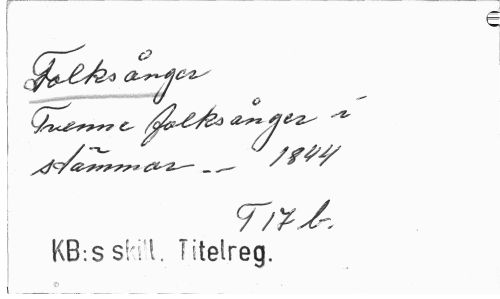 Folksånger
Tvenne folksånger i
stämmor -- 1844
T 17 b.
KB:s skill. Titelreg.